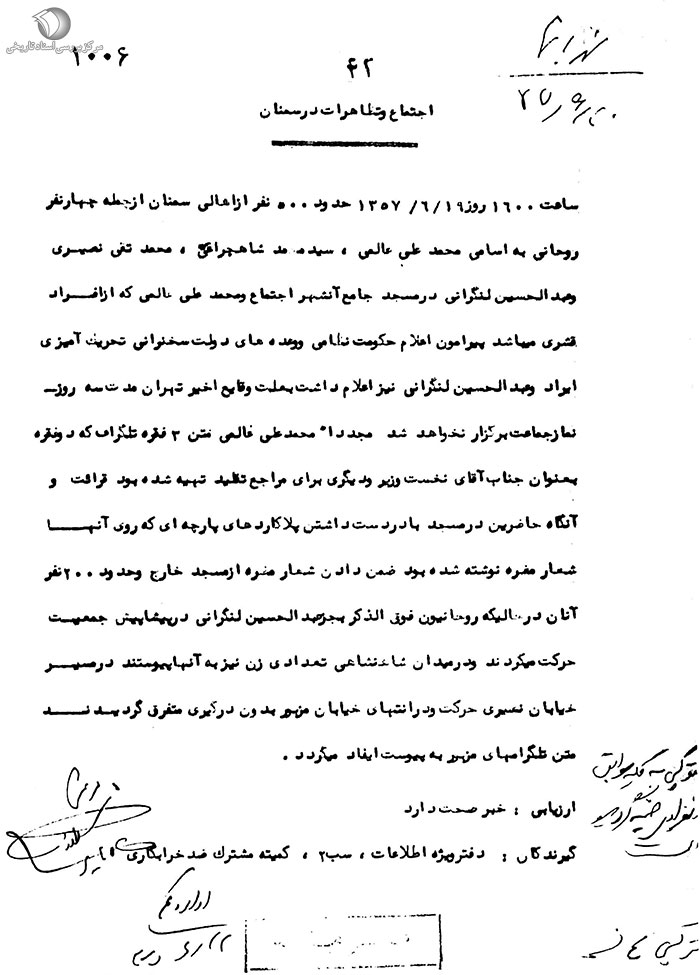 مرکز بررسی اسناد تاریخی
۱۰۰۶
۴۲
اجتماع و تظاهرات در سمنان
ساعت ۱۶۰۰ روز ۱۳۵۷/۶/۱۹ حدود ۵۰۰ نفر از اهالی سمنان از جمله چهار نفر
روحانی به اسامی محمد علی عالمی ، سید محمد شاهچراغی ، محمد تقی نصیری
وعبد الحسین لنگرانی در مسجد جامع آنشهر اجتماع ومحمد علی عالمی که از افراد
قشری میباشد پیرامون اعلام حکومت نظامی ووعده های دولت سخنرانی تحریک آمیزی
ایراد وعبد الحسین لنگرانی نیز اعلام داشت بعلت وقایع اخیر تهران مدت سه روز
نماز جماعت برگزار نخواهد شد مجددا" محمد علی عالمی متن ۳ فقره تلگراف که دو فقره
بعنوان جناب آقای نخست وزیر و دیگری برای مراجع تقلید تهیه شده بود قرائت و
آنگاه حاضرین در مسجد با در دست داشتن پلاکارد های پارچه ای که روی آنها
شعار مضره نوشته شده بود ضمن دادن شعار مضره از مسجد خارج وحدود ۲۰۰ نفر
آنان در حالیکه روحانیون فوق الذکر بجز عبد الحسین لنگرانی در پیشاپیش جمعیت
حرکت میکردند ودر میدان شاهنشاهی تعدادی زن نیز به آنها پیوستند در مسیر
خیابان نصیری حرکت ودر انتهای خیابان مزبور بدون درگیری متفرق گردیدند
متن تلگرامهای مزبور به پیوست ایفاد میگردد .
ارزیابی : خبر صحت دارد
گیرندگان : دفتر ویژه اطلاعات ، سب۲ ، کمیته مشترک ضد خرابکاری